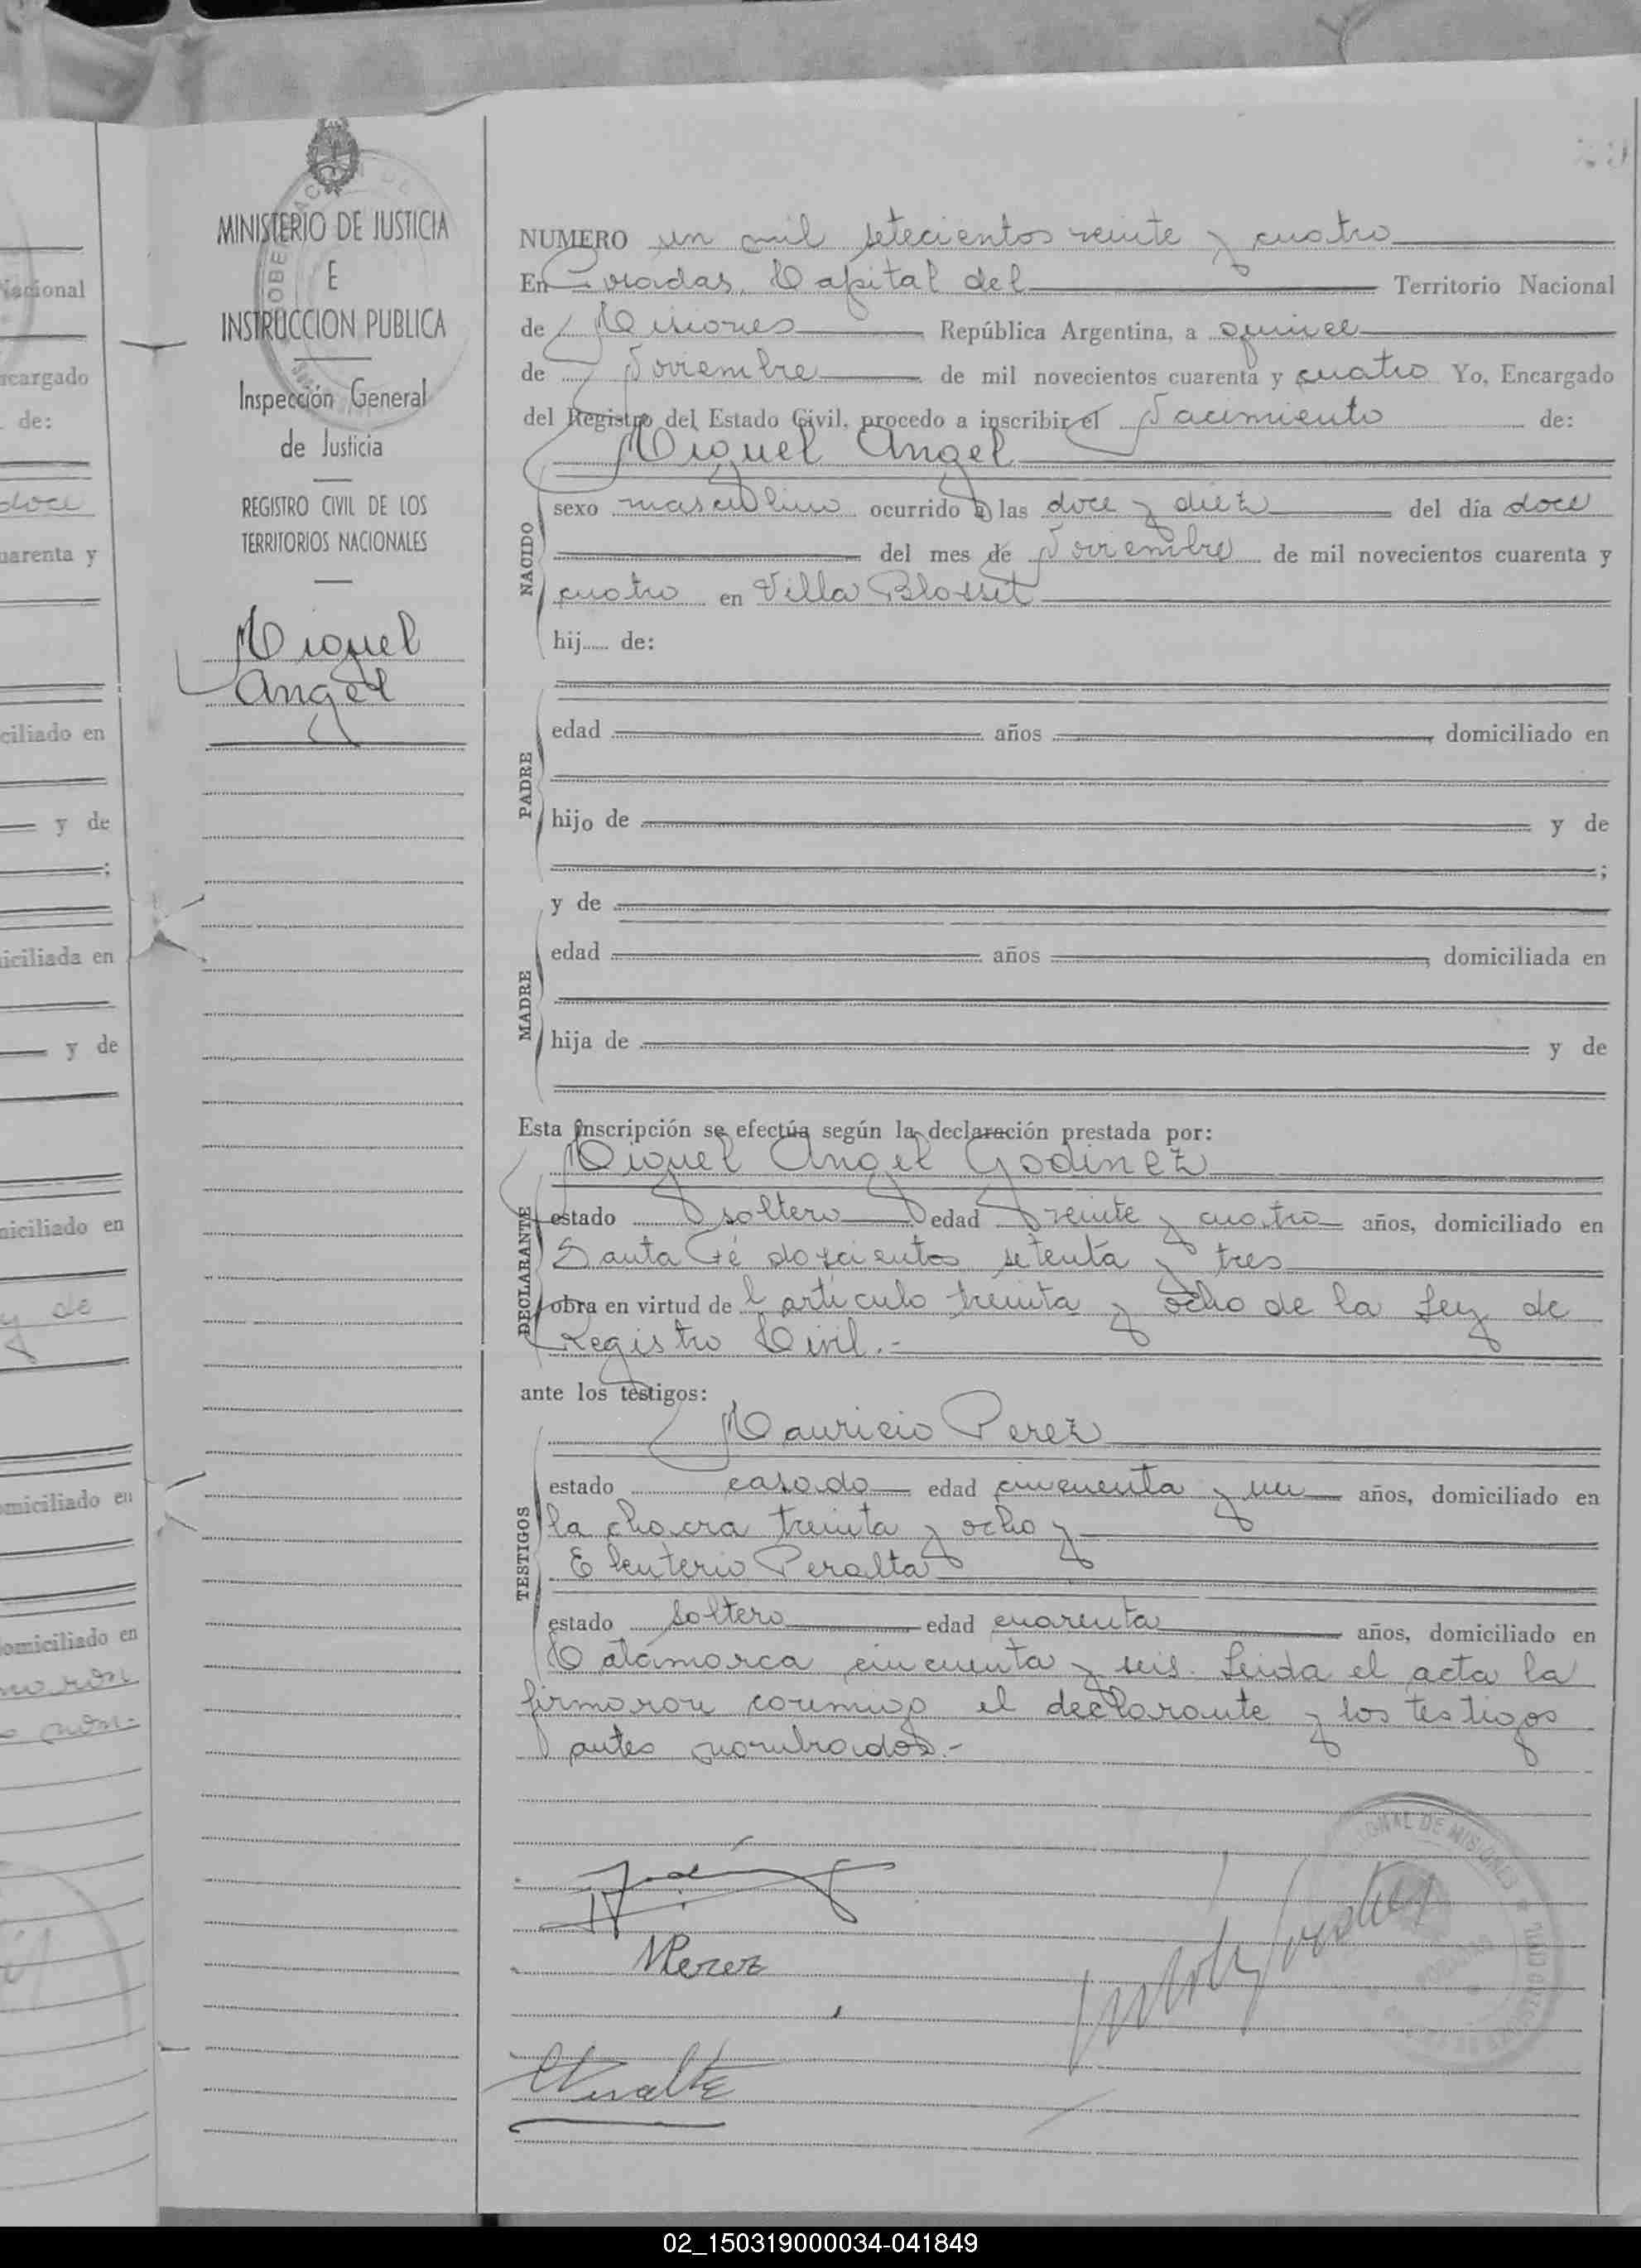 MINISTERIO DE JUSTICIA
E
INSTRUCCION PUBLICA
Inspección General
de Justicia
REGISTRO CIVIL DE LOS
TERRITORIOS NACIONALES
Miguel
Angel
NUMERO un mil setecientos veinte y cuatro
En Posadas, Capital del Territorio Nacional
de Misiones República Argentina, a quince
de Noviembre de mil novecientos cuarenta y cuatro Yo, Encargado
del Registro del Estado Civil, procedo a inscribir el Nacimiento de:
Miguel Angel
NACIDO
sexo masculino ocurrido a las doce y diez del dia doce
del mes de Noviembre de mil novecientos cuarenta y
cuatro en Villa Blosset
hij..... de:
PADRE
edad años , domiciliado en
hijo de y de
;
MADRE
y de
edad años , domiciliada en
hija de y de
Esta inscripción se efectúa según la declaración prestada por:
Miguel Angel Godinez
DECLARANTE
estado soltero edad veinte y cuatro años, domiciliado en
Santa Fé doscientos setenta y tres
obra en virtud de l artículo treinta y ocho de la Ley de
Registro Civil.-
ante los testigos:
Mauricio Perez
TESTIGOS
estado casado edad cincuenta y un años, domiciliado en
la chacra treinta y ocho y
Eleuterio Peralta
estado soltero edad cuarenta años, domiciliado en
Catamarca cincuenta y seis. Leida el acta la
firmaron conmigo el declarante y los testigos
antes nombrados.-
MPerez
EPeralta
Nacional
ncargado
de:
doce
uarenta y
ciliado en
y de
;
iciliada en
y de
miciliado en
y de
omiciliado en
domiciliado en
02_150319000034-041849